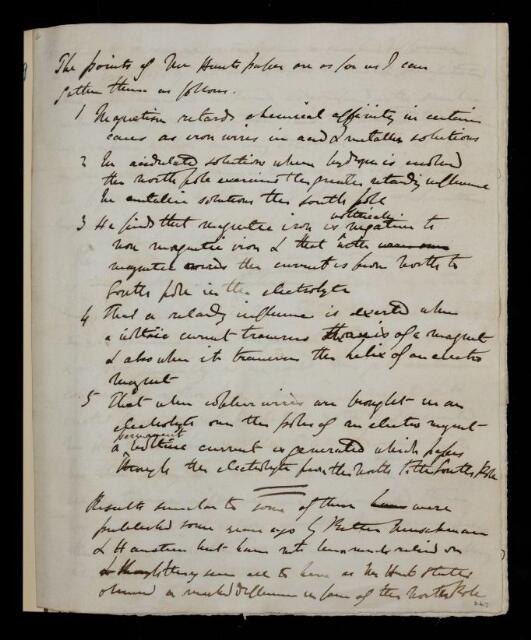 The points of Mr Hunts paper are as far as I can
gather them as follows.
1 Magnetism retards chemical affinity in certain
cases as iron wires in acid & metallic solutions
2 In acidulated solutions where hydrogen is evolved
the north pole exercised the greater retarding influence
In metallic solutions the south pole
3 He finds that magnetic iron is voltaically negative to
non magnetic iron & that with
magnetic the current is from North to
South pole in the electrolyte
4 That a retarding influence is exerted when
a voltaic current traverses the axis of a magnet
& also when it traverses the helix of an electro
magnet
5 That when copper wires are brought in an
electrolyte over the poles of an electro magnet
a permanent voltaic current is generated which passes
through the electrolyte from the North to the South Pole
Results similar to some of these were
published some years ago by Ritter
& Hansteen but have not been much relied on
they seem all to have as Mr Hunt states
observed a marked difference in favor of the North Pole